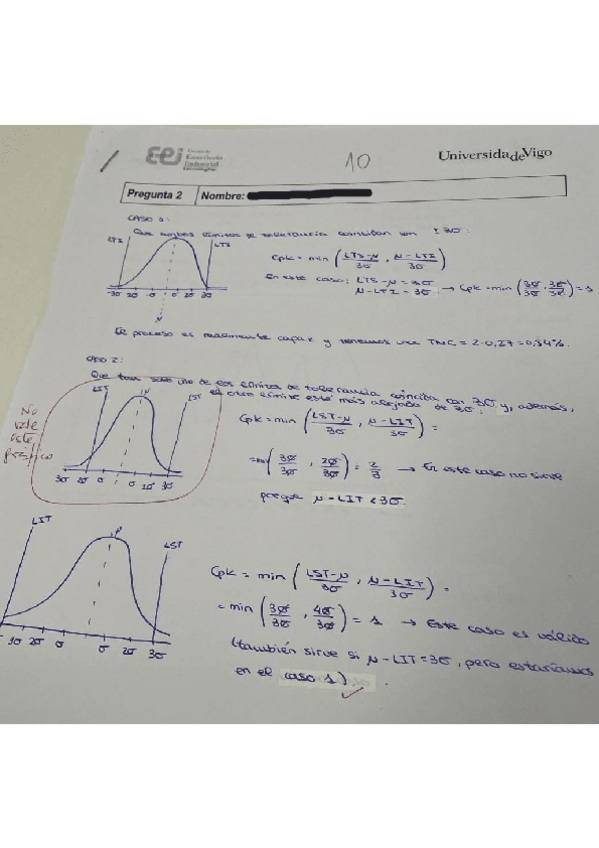 eei Escuela de Ingeniería Industrial
10
Universida de Vigo
Pregunta 2 Nombre:
CASO 1:
Que ambos límites de tolerancia coincidan con ±3σ:
LTI LTS
Cpk = min (LTS-μ/3σ , μ-LTI/3σ)
En este caso: LTS-μ = 3σ
μ-LTI = 3σ → Cpk = min (3σ/3σ, 3σ/3σ) = 1
-3σ -2σ -σ σ 2σ 3σ
μ
El proceso es realmente capaz y tenemos una TNC = 2·0,27 = 0,54%.
CASO 2:
Que tan solo uno de los límites de tolerancia coincida con 3σ y, además,
el otro límite esté más alejado de 3σ:
LIT μ LST
No vale este gráfico
Cpk = min (LST-μ/3σ , μ-LIT/3σ) =
= min (3σ/3σ , 2σ/3σ) = 2/3 → En este caso no sirve
3σ 2σ σ σ 2σ 3σ
porque μ-LIT < 3σ.
LIT μ LST
Cpk = min (LST-μ/3σ , μ-LIT/3σ) =
= min (3σ/3σ , 4σ/3σ) = 1 → Este caso es válido
3σ 2σ σ σ 2σ 3σ
(también sirve si μ-LIT = 3σ, pero estaríamos
en el caso 1)